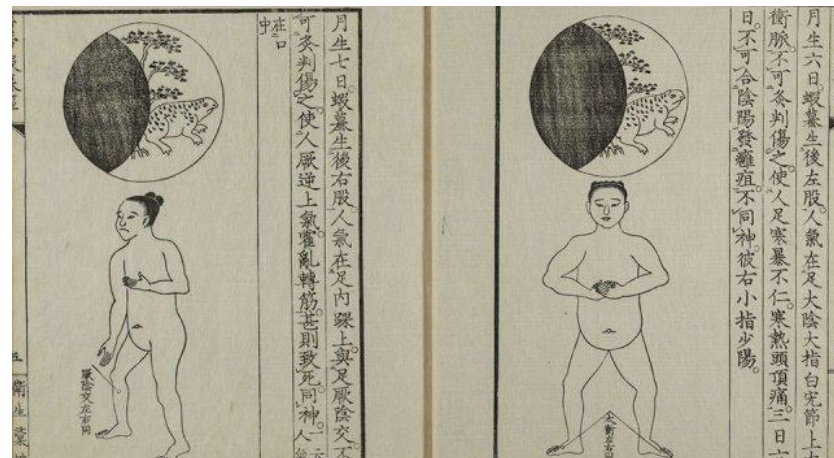 月生六日。蝦蟇生後左股。人氣在足大陰大指白完節上
衝脈。不可灸判傷之。使人足寒暴不仁。寒熱頭頂痛。三日
日。不可合陰陽發癰疽。不同神。彼右小指少陽。
太衝左右同
月生七日。蝦蟇生後右股。人氣在足內踝上。與足厥陰交。不
可灸判傷之。使人厥逆上氣霍亂轉筋。甚則致死。同神。人
在口
中
厥陰交左右同
五
衛生彙